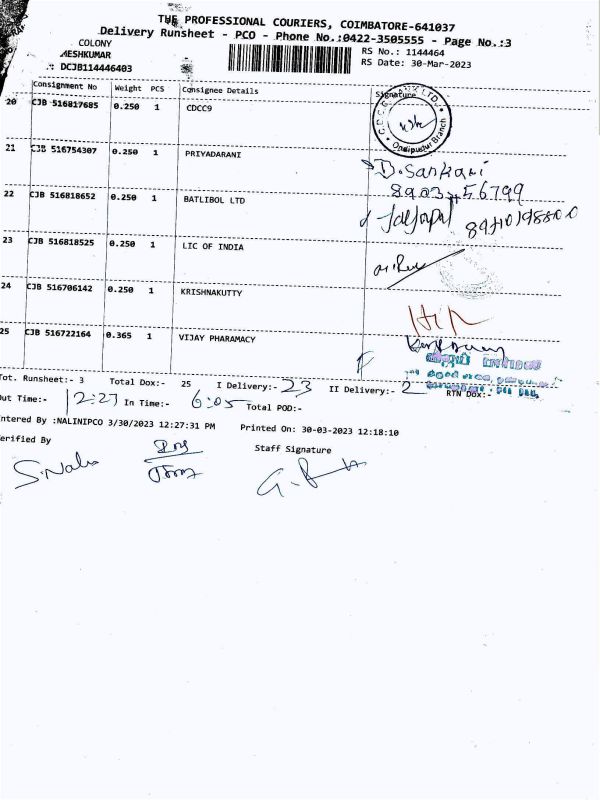 THE PROFESSIONAL COURIERS, COIMBATORE-641037
Delivery Runsheet - PCO - Phone No.:0422-3505555 - Page No.:3
COLONY
MESHKUMAR
RS No.: 1144464
.: DCJB114446403
RS Date: 30-Mar-2023
Consignment No Weight PCS Consignee Details Signature
20 CJB 516817685 0.250 1 CDCC9
Ondipustur Branch
21 CJB 516754307 0.250 1 PRIYADARANI
D.Sankari
8903456799
22 CJB 516818652 0.250 1 BATLIBOL LTD
23 CJB 516818525 0.250 1 LIC OF INDIA
24 CJB 516706142 0.250 1 KRISHNAKUTTY
25 CJB 516722164 0.365 1 VIJAY PHARAMACY
Tot. Runsheet:- 3 Total Dox:- 25 I Delivery:- 23 II Delivery:- 2 RTN Dox:-
Out Time:- 12:27 In Time:- 6:05 Total POD:-
ntered By :NALINIPCO 3/30/2023 12:27:31 PM Printed On: 30-03-2023 12:18:10
erified By Staff Signature
S.Nalu